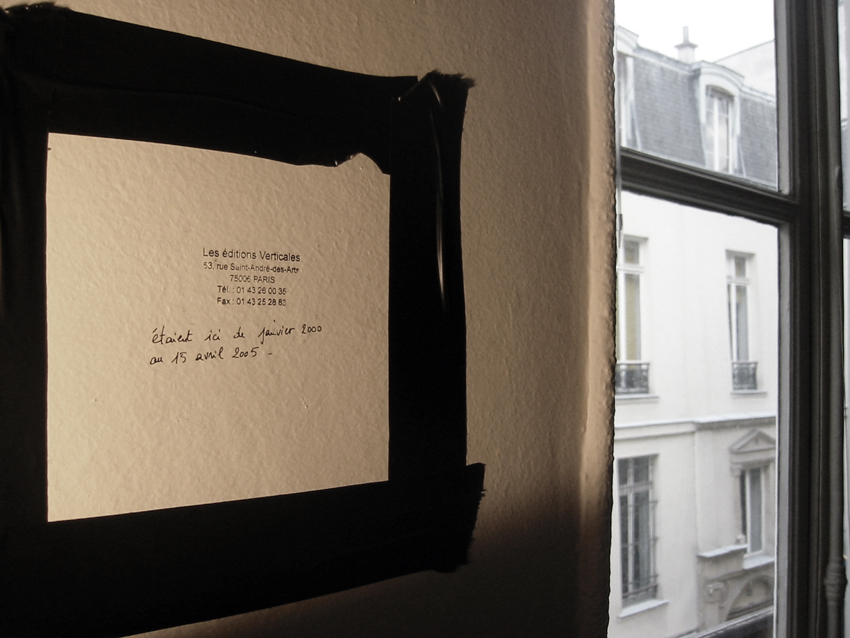 Les éditions Verticales
53, rue Saint-André-des-Arts
75006 PARIS
Tél. : 01 43 26 00 35
Fax : 01 43 25 28 83
étaient ici de janvier 2000
au 15 avril 2005 -